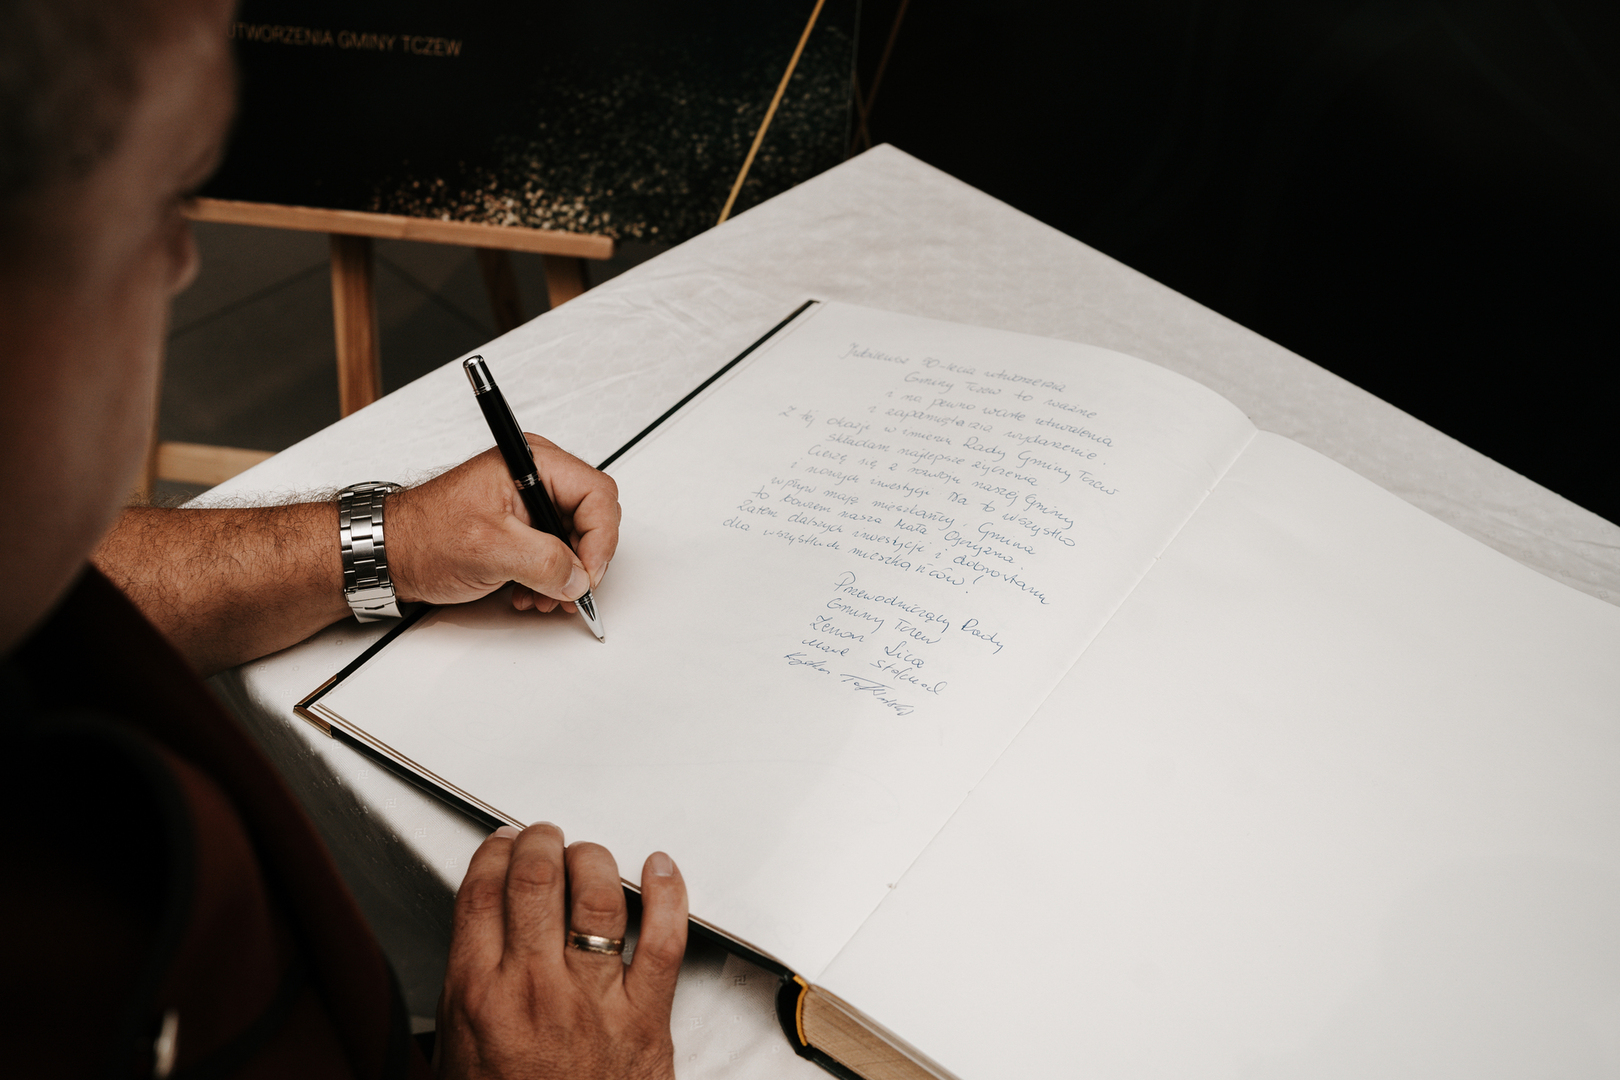 UTWORZENIA GMINY TCZEW
Jubileusz 90-lecia utworzenia
Gminy Tczew to ważne
i na pewno warte utrwalenia
i zapamiętania wydarzenie.
Z tej okazji w imieniu Rady Gminy Tczew
składam najlepsze życzenia
Cieszę się z rozwoju naszej Gminy
i nowych inwestycji. Na to wszystko
wpływ mają mieszkańcy. Gmina
to bowiem nasza Mała Ojczyzna.
Zatem dalszych inwestycji i dobrostanu
dla wszystkich mieszkańców!
Przewodniczący Rady
Gminy Tczew